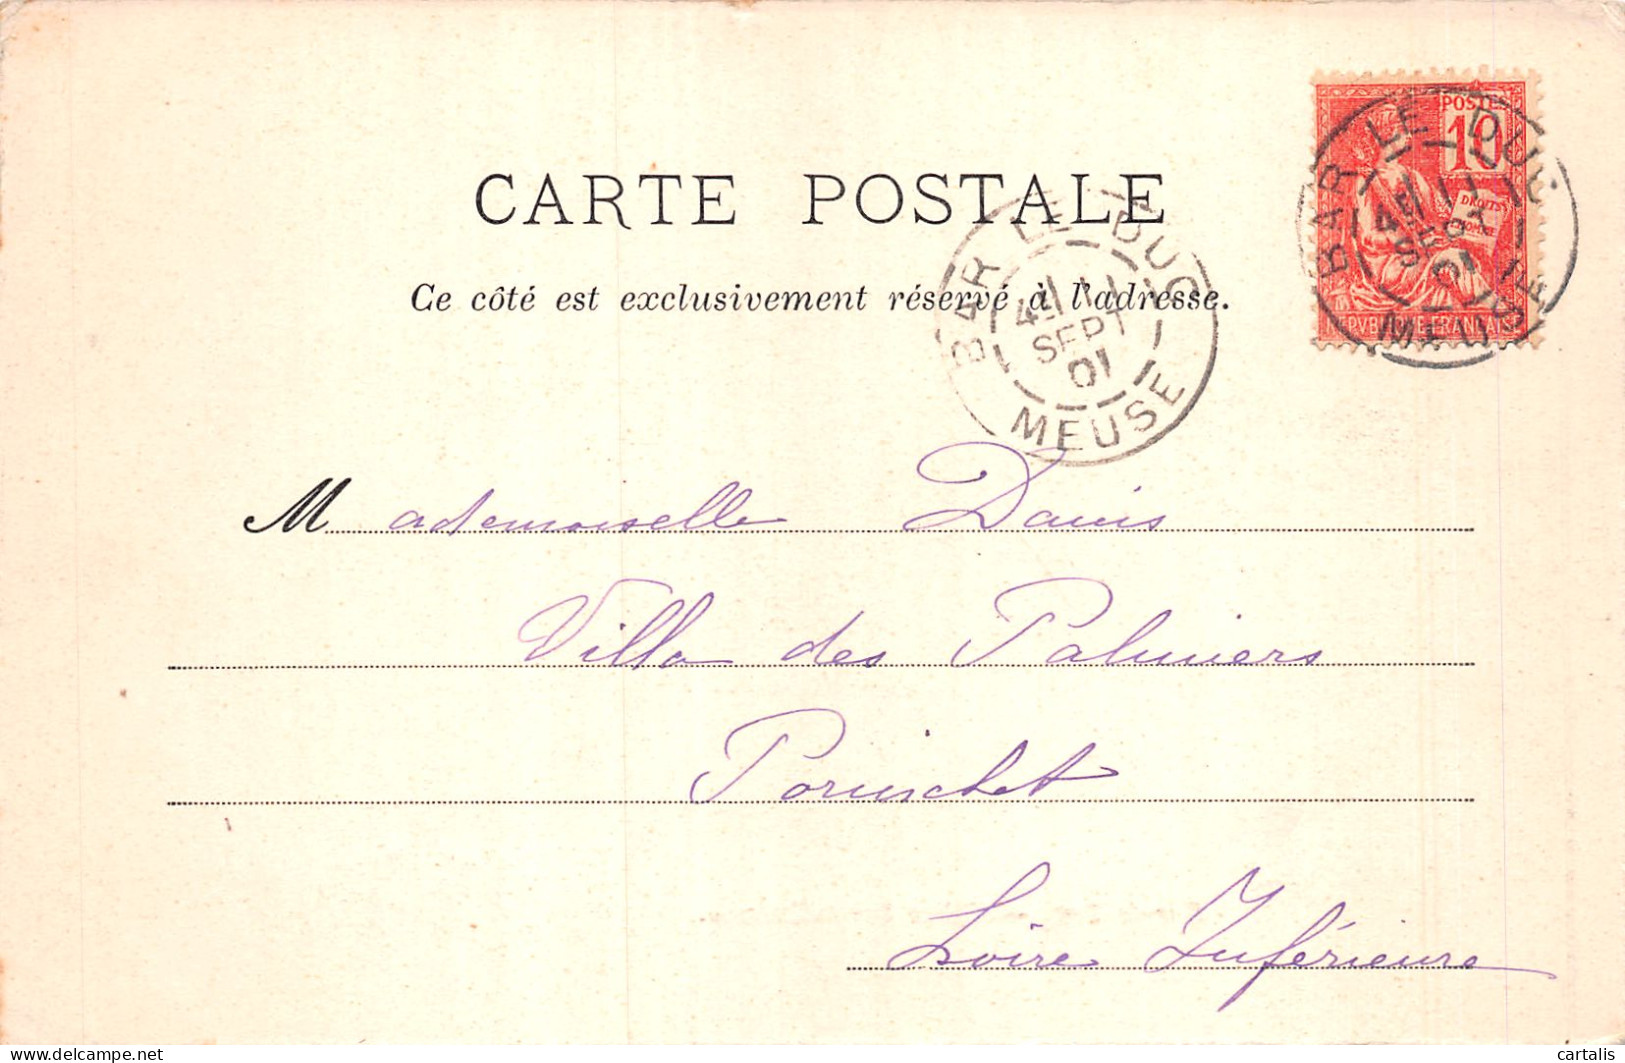 CARTE POSTALE
Ce côté est exclusivement réservé à l'adresse.
POSTES
10
DROITS
REPVBLIQVE FRANÇAISE
BAR LE DUC
11
SEPT
01
MEUSE
BAR LE DUC
11
SEPT
01
MEUSE
Mademoiselle Danis
Villa des Palmiers
Pornichet
Loire Inférieure
delcampe.net
cartalis